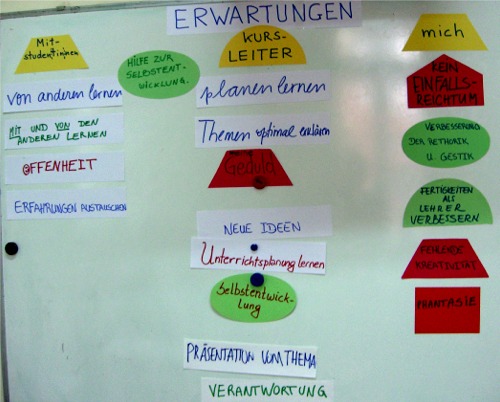 ERWARTUNGEN
Mit-
studentinnen
von anderen lernen
MIT UND VON DEN
ANDEREN LERNEN
OFFENHEIT
ERFAHRUNGEN AUSTAUSCHEN
HILFE ZUR
SELBSTENT-
WICKLUNG.
KURS-
LEITER
planen lernen
Themen optimal erklären
Geduld
NEUE IDEEN
Unterrichtsplanung lernen
Selbstentwick-
lung
PRÄSENTATION VOM THEMA
VERANTWORTUNG
mich
KEIN
EINFALLS-
REICHTUM
VERBESSERUNG
DER RETHORIK
U. GESTIK
FERTIGKEITEN
ALS
LEHRER
VERBESSERN
FEHLENDE
KREATIVITÄT
PHANTASIE